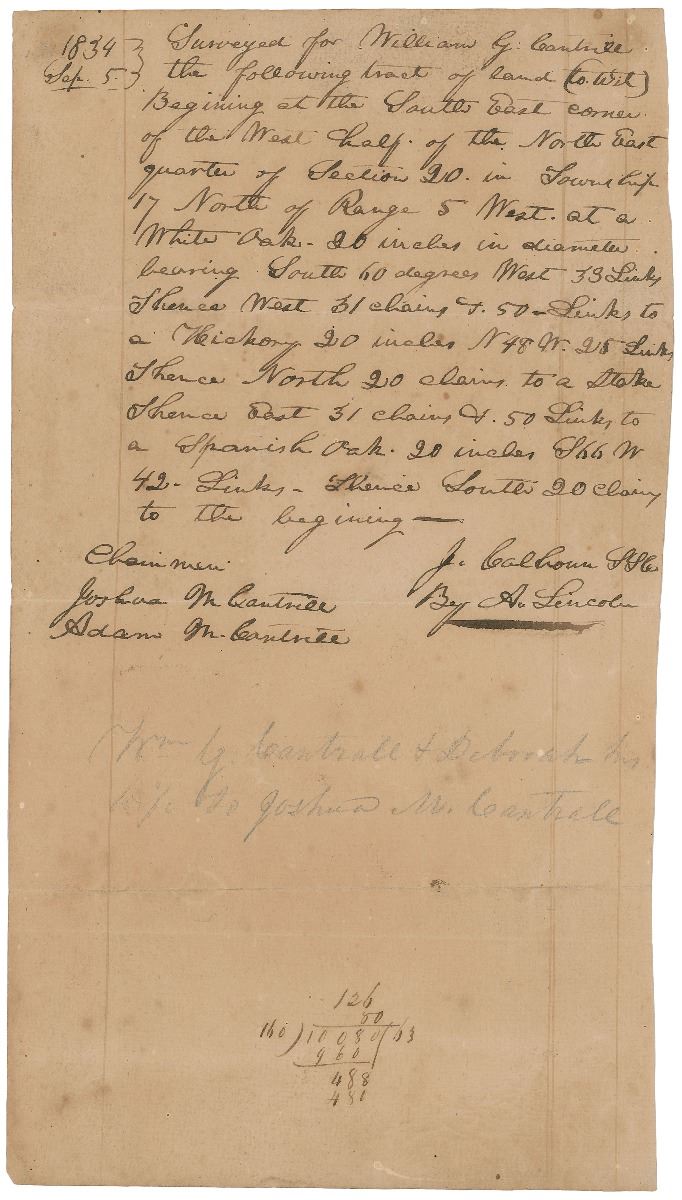 1834 } Surveyed for William G. Cantrill
Sep. 5. } the following tract of land (to wit)
Begining at the South East corner
of the West half. of the North East
quarter of Section 20. in Township
17 North of Range 5 West. at a
White Oak - 20 inches in diameter
bearing South 60 degrees West 33 Links
Thence West 31 chains &. 50 - Links to
a Hickory 20 inches N 48 W. 25 Links
Thence North 20 chains to a Stake
Thence East 31 chains &. 50 Links to
a Spanish Oak. 20 inches S66 W
42 - Links - Thence South 20 chains
to the begining —
Chainmen J. Calhoun SSC
Joshua M Cantrill By A. Lincoln
Adam M. Cantrill
Wm G. Cantrall & Deborah his
wife to Joshua M. Cantrall
126
80
160 ) 10080 ( 63
960
488
480